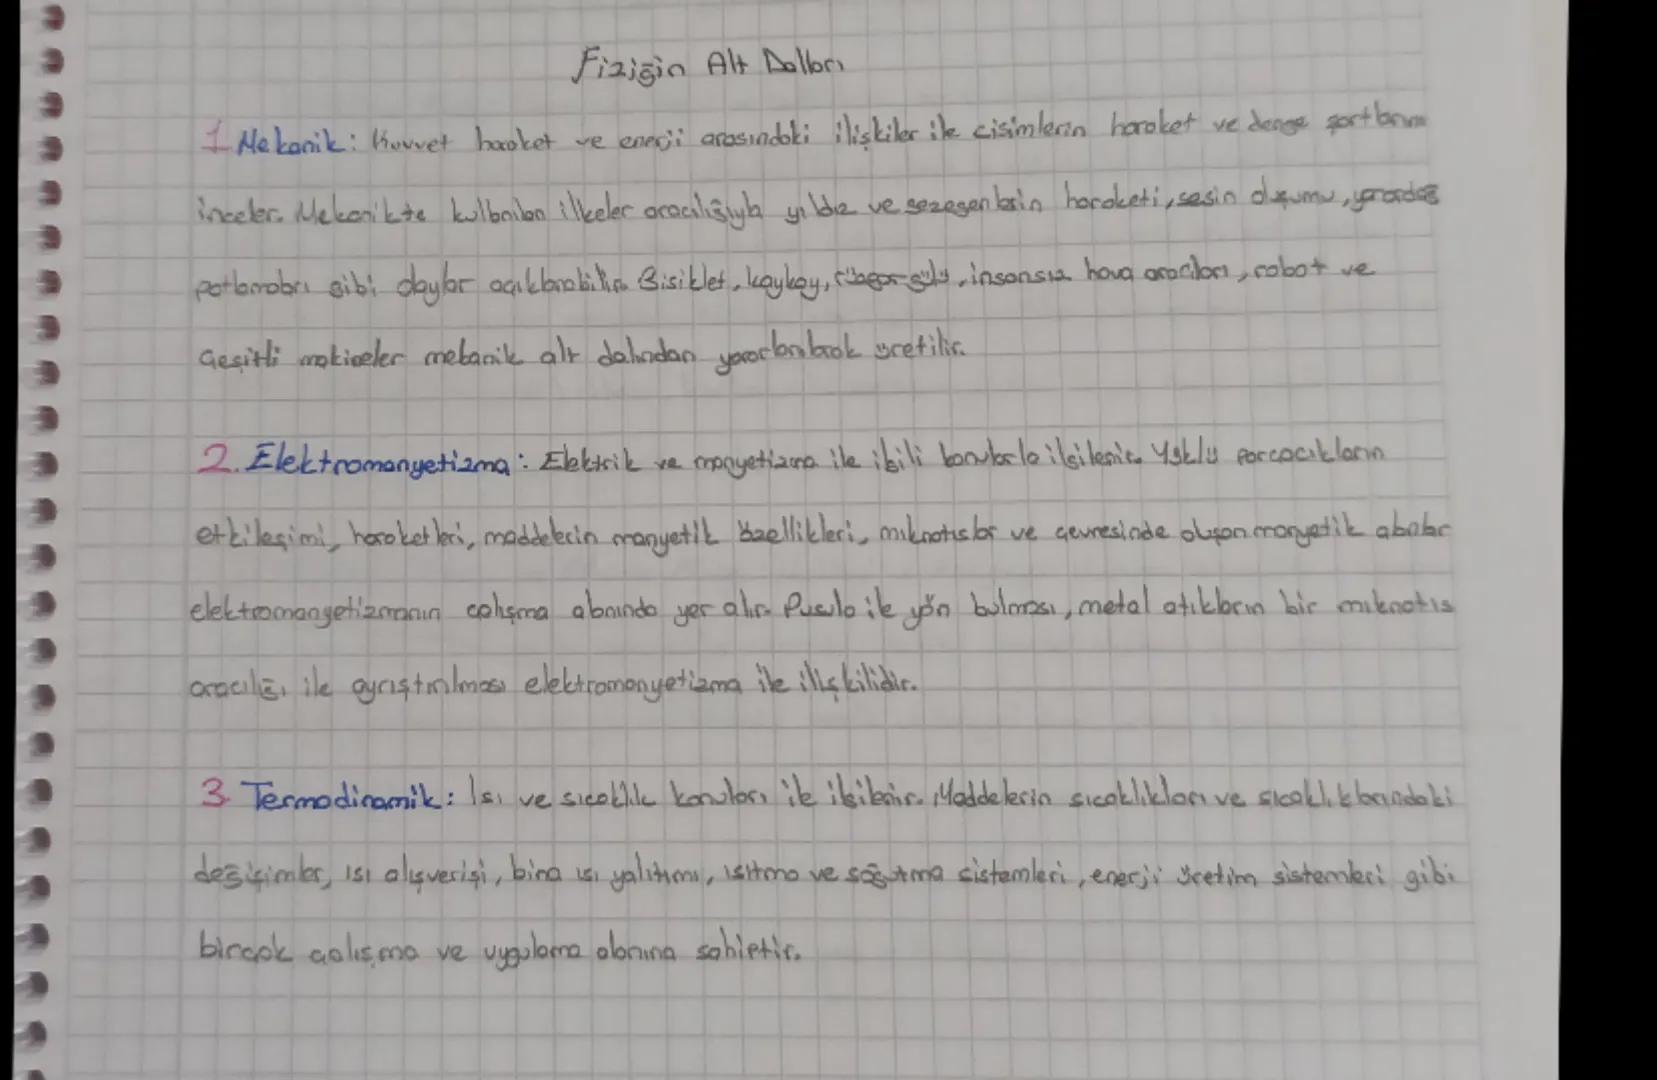 Fiziğin Alt Dalları
1. Mekanik: Kuvvet hareket ve enerji arasındaki ilişkiler ile cisimlerin hareket ve denge şartlarını
inceler. Mekanikte kullanılan ilkeler aracılığıyla yıldız ve gezegenlerin hareketi, sesin oluşumu, yanardağ
patlamaları gibi olaylar açıklanabilir. Bisiklet, kaykay, rüzgar gülü, insansız hava araçları, robot ve
Çeşitli makineler mekanik alt dalından yararlanılarak üretilir.
2. Elektromanyetizma: Elektrik ve manyetizma ile ilgili konularla ilgilenir. Yüklü parçacıkların
etkileşimi, hareketleri, maddelerin manyetik özellikleri, mıknatıslar ve çevresinde oluşan manyetik alanlar
elektromanyetizmanın çalışma alanında yer alır. Pusula ile yön bulması, metal atıkların bir mıknatıs
aracılığı ile ayrıştırılması elektromanyetizma ile ilişkilidir.
3. Termodinamik: Isı ve sıcaklık konuları ile ilgilenir. Maddelerin sıcaklıkları ve sıcaklıklarındaki
değişimler, ısı alışverişi, bina ısı yalıtımı, ısıtma ve soğutma sistemleri, enerji üretim sistemleri gibi
birçok çalışma ve uygulama alanına sahiptir.